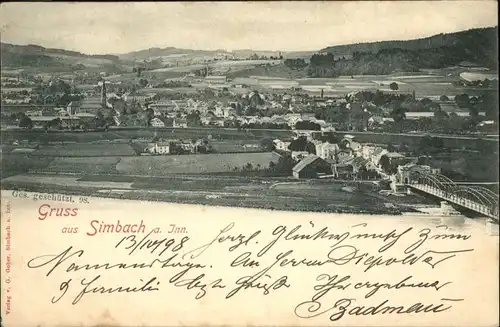 Ges. geschützt, 98.
Gruss
aus Simbach a. Inn.
13/10/98 Herzl. Glückwunsch zum
Namenstage. An Herrn Diepolder
& Familie beste Grüße Ihr ergebenster
Badmann
Verlag v. G. Goher, Simbach a. Inn.